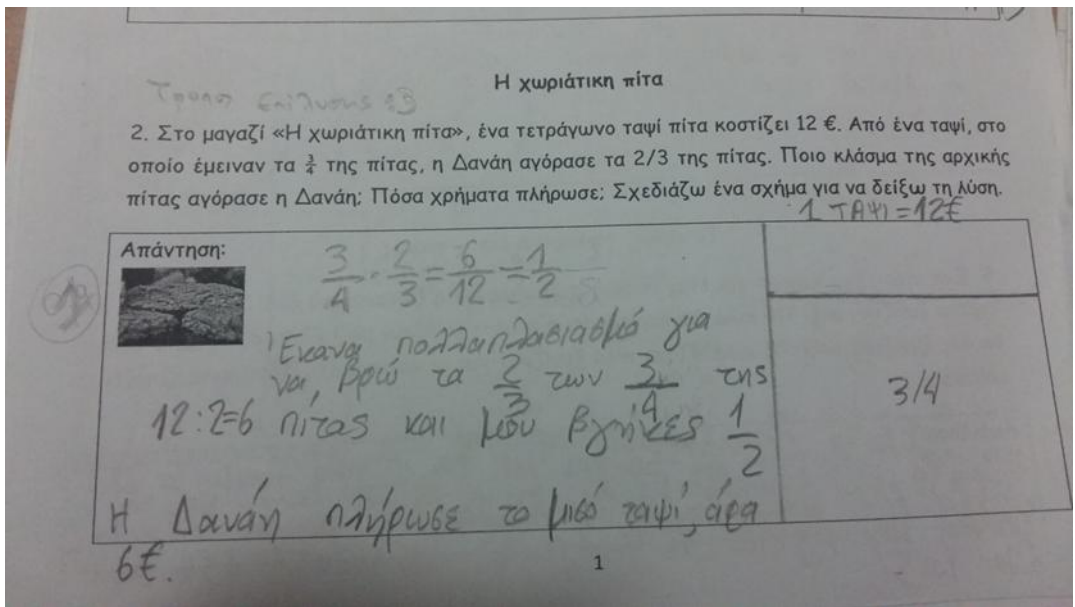 Η χωριάτικη πίτα
Τρόποι επίλυσης
2. Στο μαγαζί «Η χωριάτικη πίτα», ένα τετράγωνο ταψί πίτα κοστίζει 12 €. Από ένα ταψί, στο
οποίο έμειναν τα 3/4 της πίτας, η Δανάη αγόρασε τα 2/3 της πίτας. Ποιο κλάσμα της αρχικής
πίτας αγόρασε η Δανάη; Πόσα χρήματα πλήρωσε; Σχεδιάζω ένα σχήμα για να δείξω τη λύση.
1 ΤΑΨΙ = 12€
Απάντηση:
3/4 · 2/3 = 6/12 = 1/2
Έκανα πολλαπλασιασμό για
να βρω τα 2/3 των 3/4 της
12:2=6 πίτας και μου βγήκες 1/2
3/4
Η Δανάη πλήρωσε το μισό ταψί, άρα
6€.
1